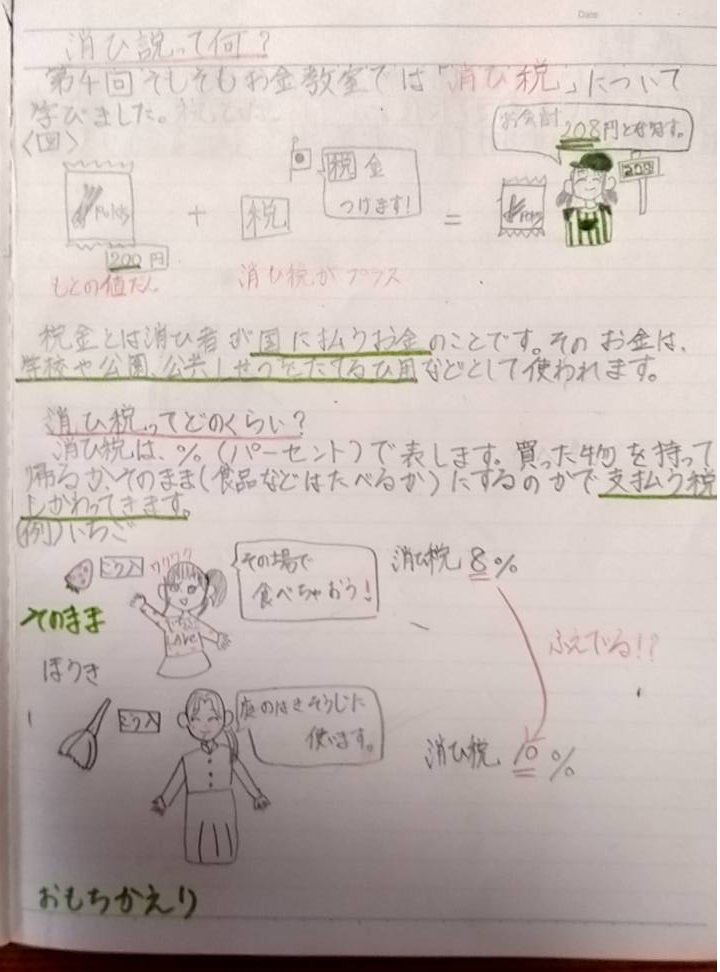 Date
消ひ説って何？
第4回そもそもお金教室では「消ひ税」について
学びました。
〈図〉
お会計
208円となります。
税金
つけます！
Potato
＋
税
＝
208
200円
もとの値だん
消ひ税がプラス
税金とは消ひ者が国に払うお金のことです。そのお金は、
学校や公園、公共しせつをたてるひ用などとして使われます。
消ひ税ってどのくらい？
消ひ税は、％（パーセント）で表します。買った物を持って
帰るか、そのまま（食品などはたべるか）にするのかで支払う税
しかわってきます。
（例）いちご
ワクワク
その場で
食べちゃおう！
消ひ税 8％
そのまま
ふえてる!?
ほうき
庭のはきそうじに
使います。
消ひ税 10％
おもちかえり